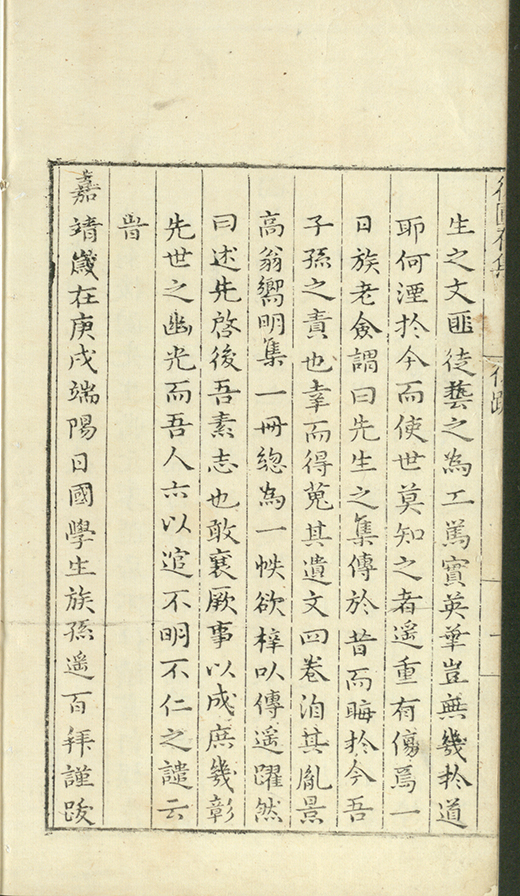 後跋
一
生之文匪徒藝之為工篤實英華豈無幾於道
耶何湮於今而使世莫知之者遥重有傷焉一
日族老僉謂曰先生之集傳於昔而晦於今吾
子孫之責也幸而得蒐其遺文四卷洎其胤景
高翁嚮明集一冊總為一帙欲梓以傳遥躍然
曰述先啓後吾素志也敢襄厥事以成庶幾彰
先世之幽光而吾人亦以逭不明不仁之譴云
旹
嘉靖歲在庚戌端陽日國學生族孫遥百拜謹跋